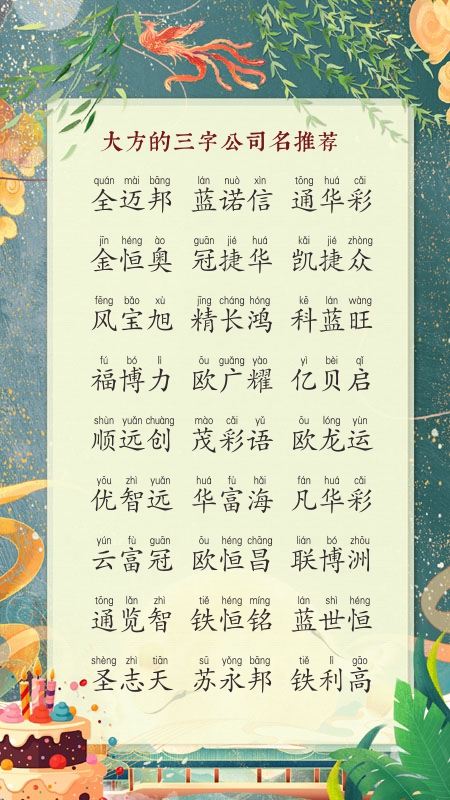 大方的三字公司名推荐
quán mài bāng lán nuò xìn tōng huá cǎi
全迈邦 蓝诺信 通华彩
jīn héng ào guān jié huá kǎi jié zhòng
金恒奥 冠捷华 凯捷众
fēng bǎo xù jīng cháng hóng kē lán wàng
风宝旭 精长鸿 科蓝旺
fú bó lì ōu guǎng yào yì bèi qǐ
福博力 欧广耀 亿贝启
shùn yuǎn chuàng mào cǎi yǔ ōu lóng yùn
顺远创 茂彩语 欧龙运
yōu zhì yuǎn huá fù hǎi fán huá cǎi
优智远 华富海 凡华彩
yún fù guān ōu héng chāng lián bó zhōu
云富冠 欧恒昌 联博洲
tōng lǎn zhì tiě héng míng lán shì héng
通览智 铁恒铭 蓝世恒
shèng zhì tiān sū yǒng bāng tiě lì gāo
圣志天 苏永邦 铁利高